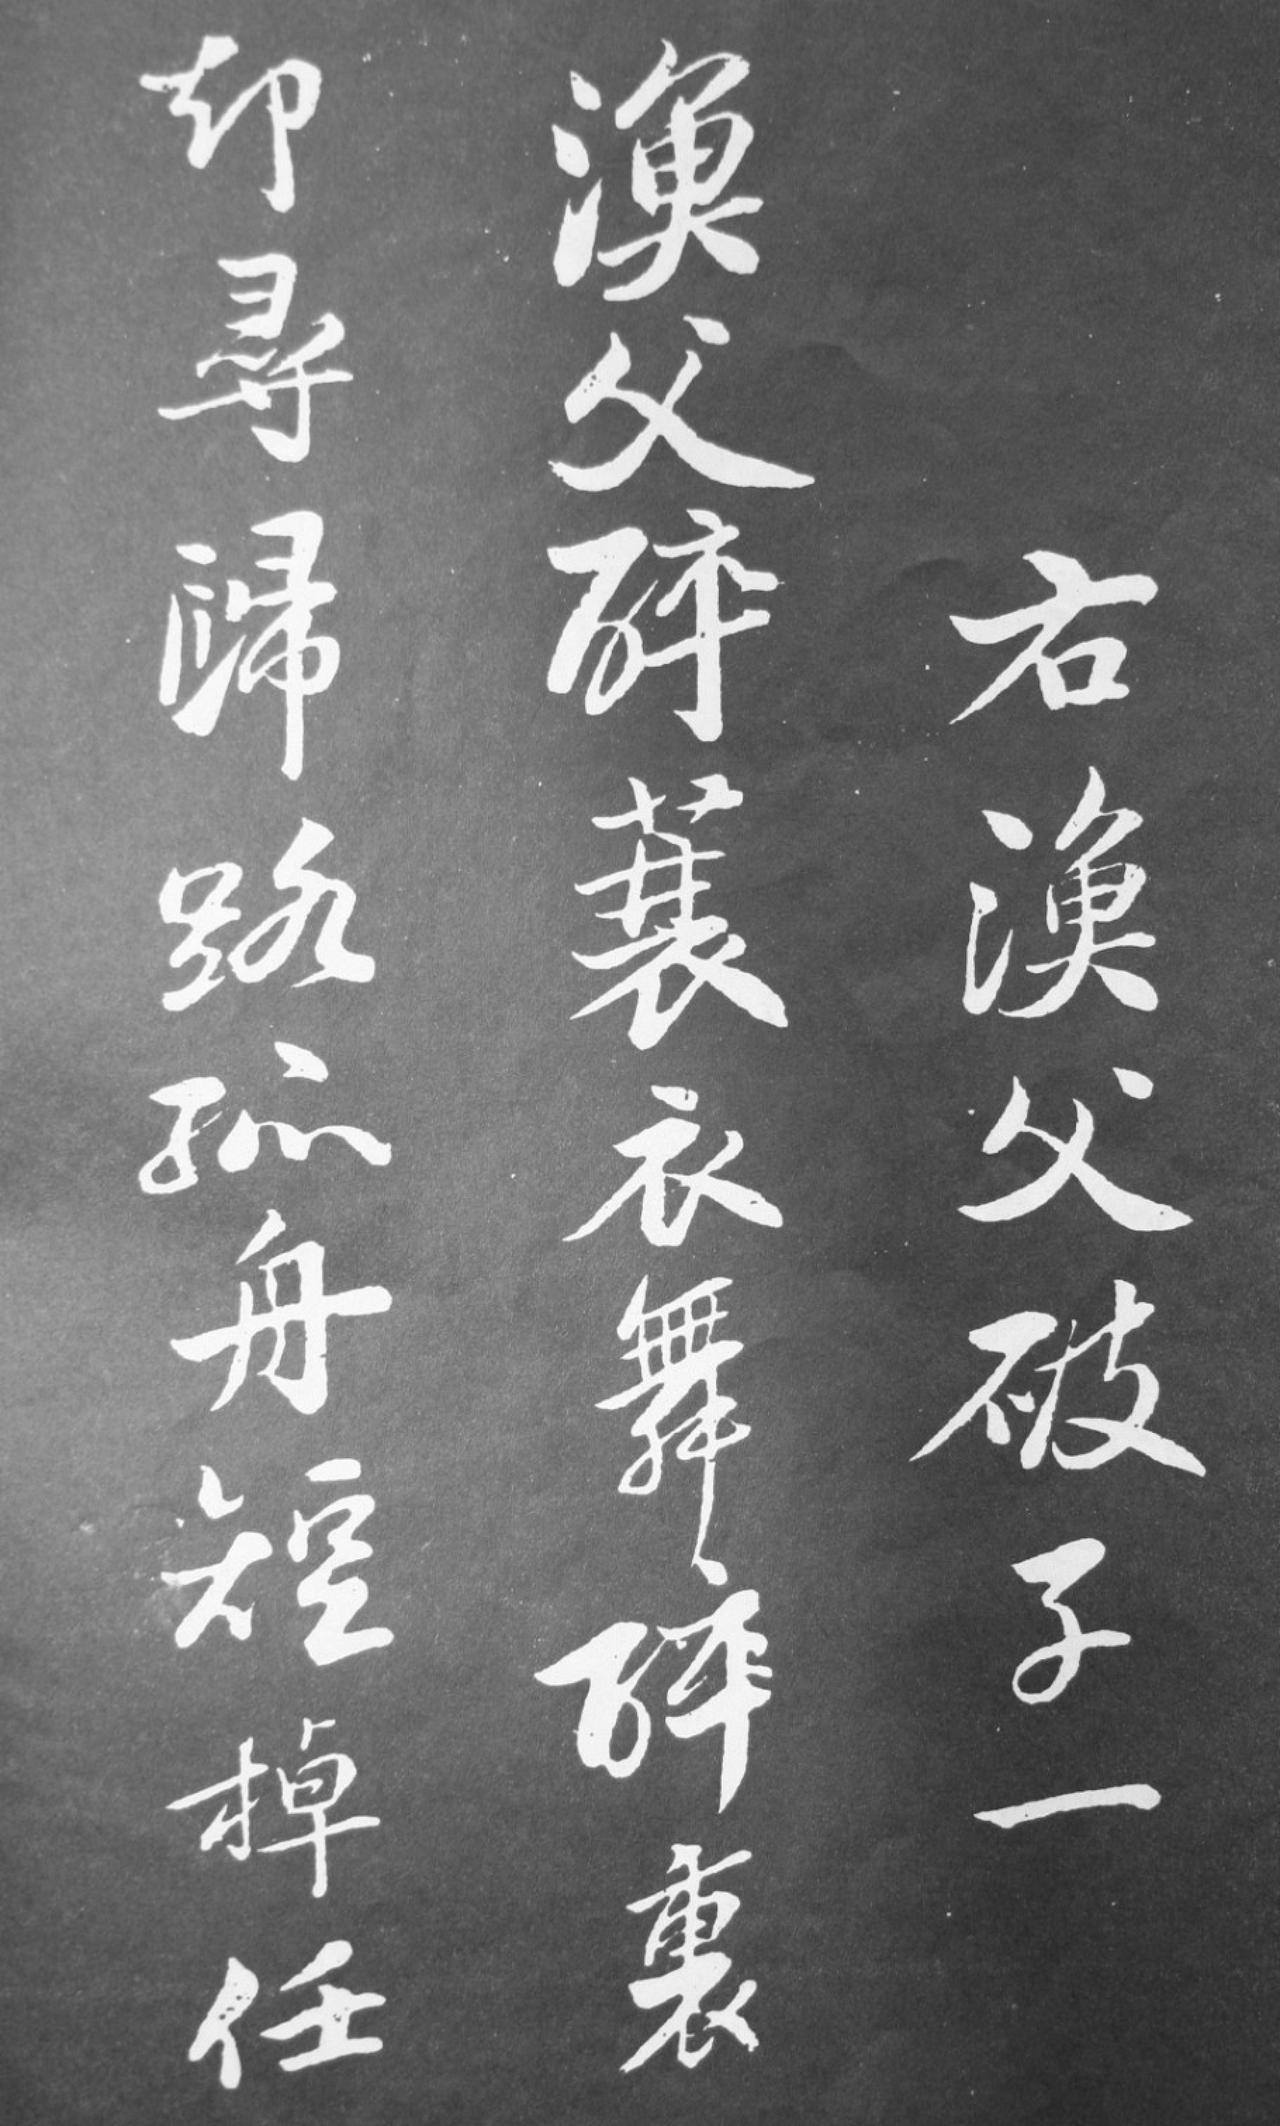 右漁父破子一
漁父醉蓑衣舞醉裏
却尋歸路孤舟短棹任